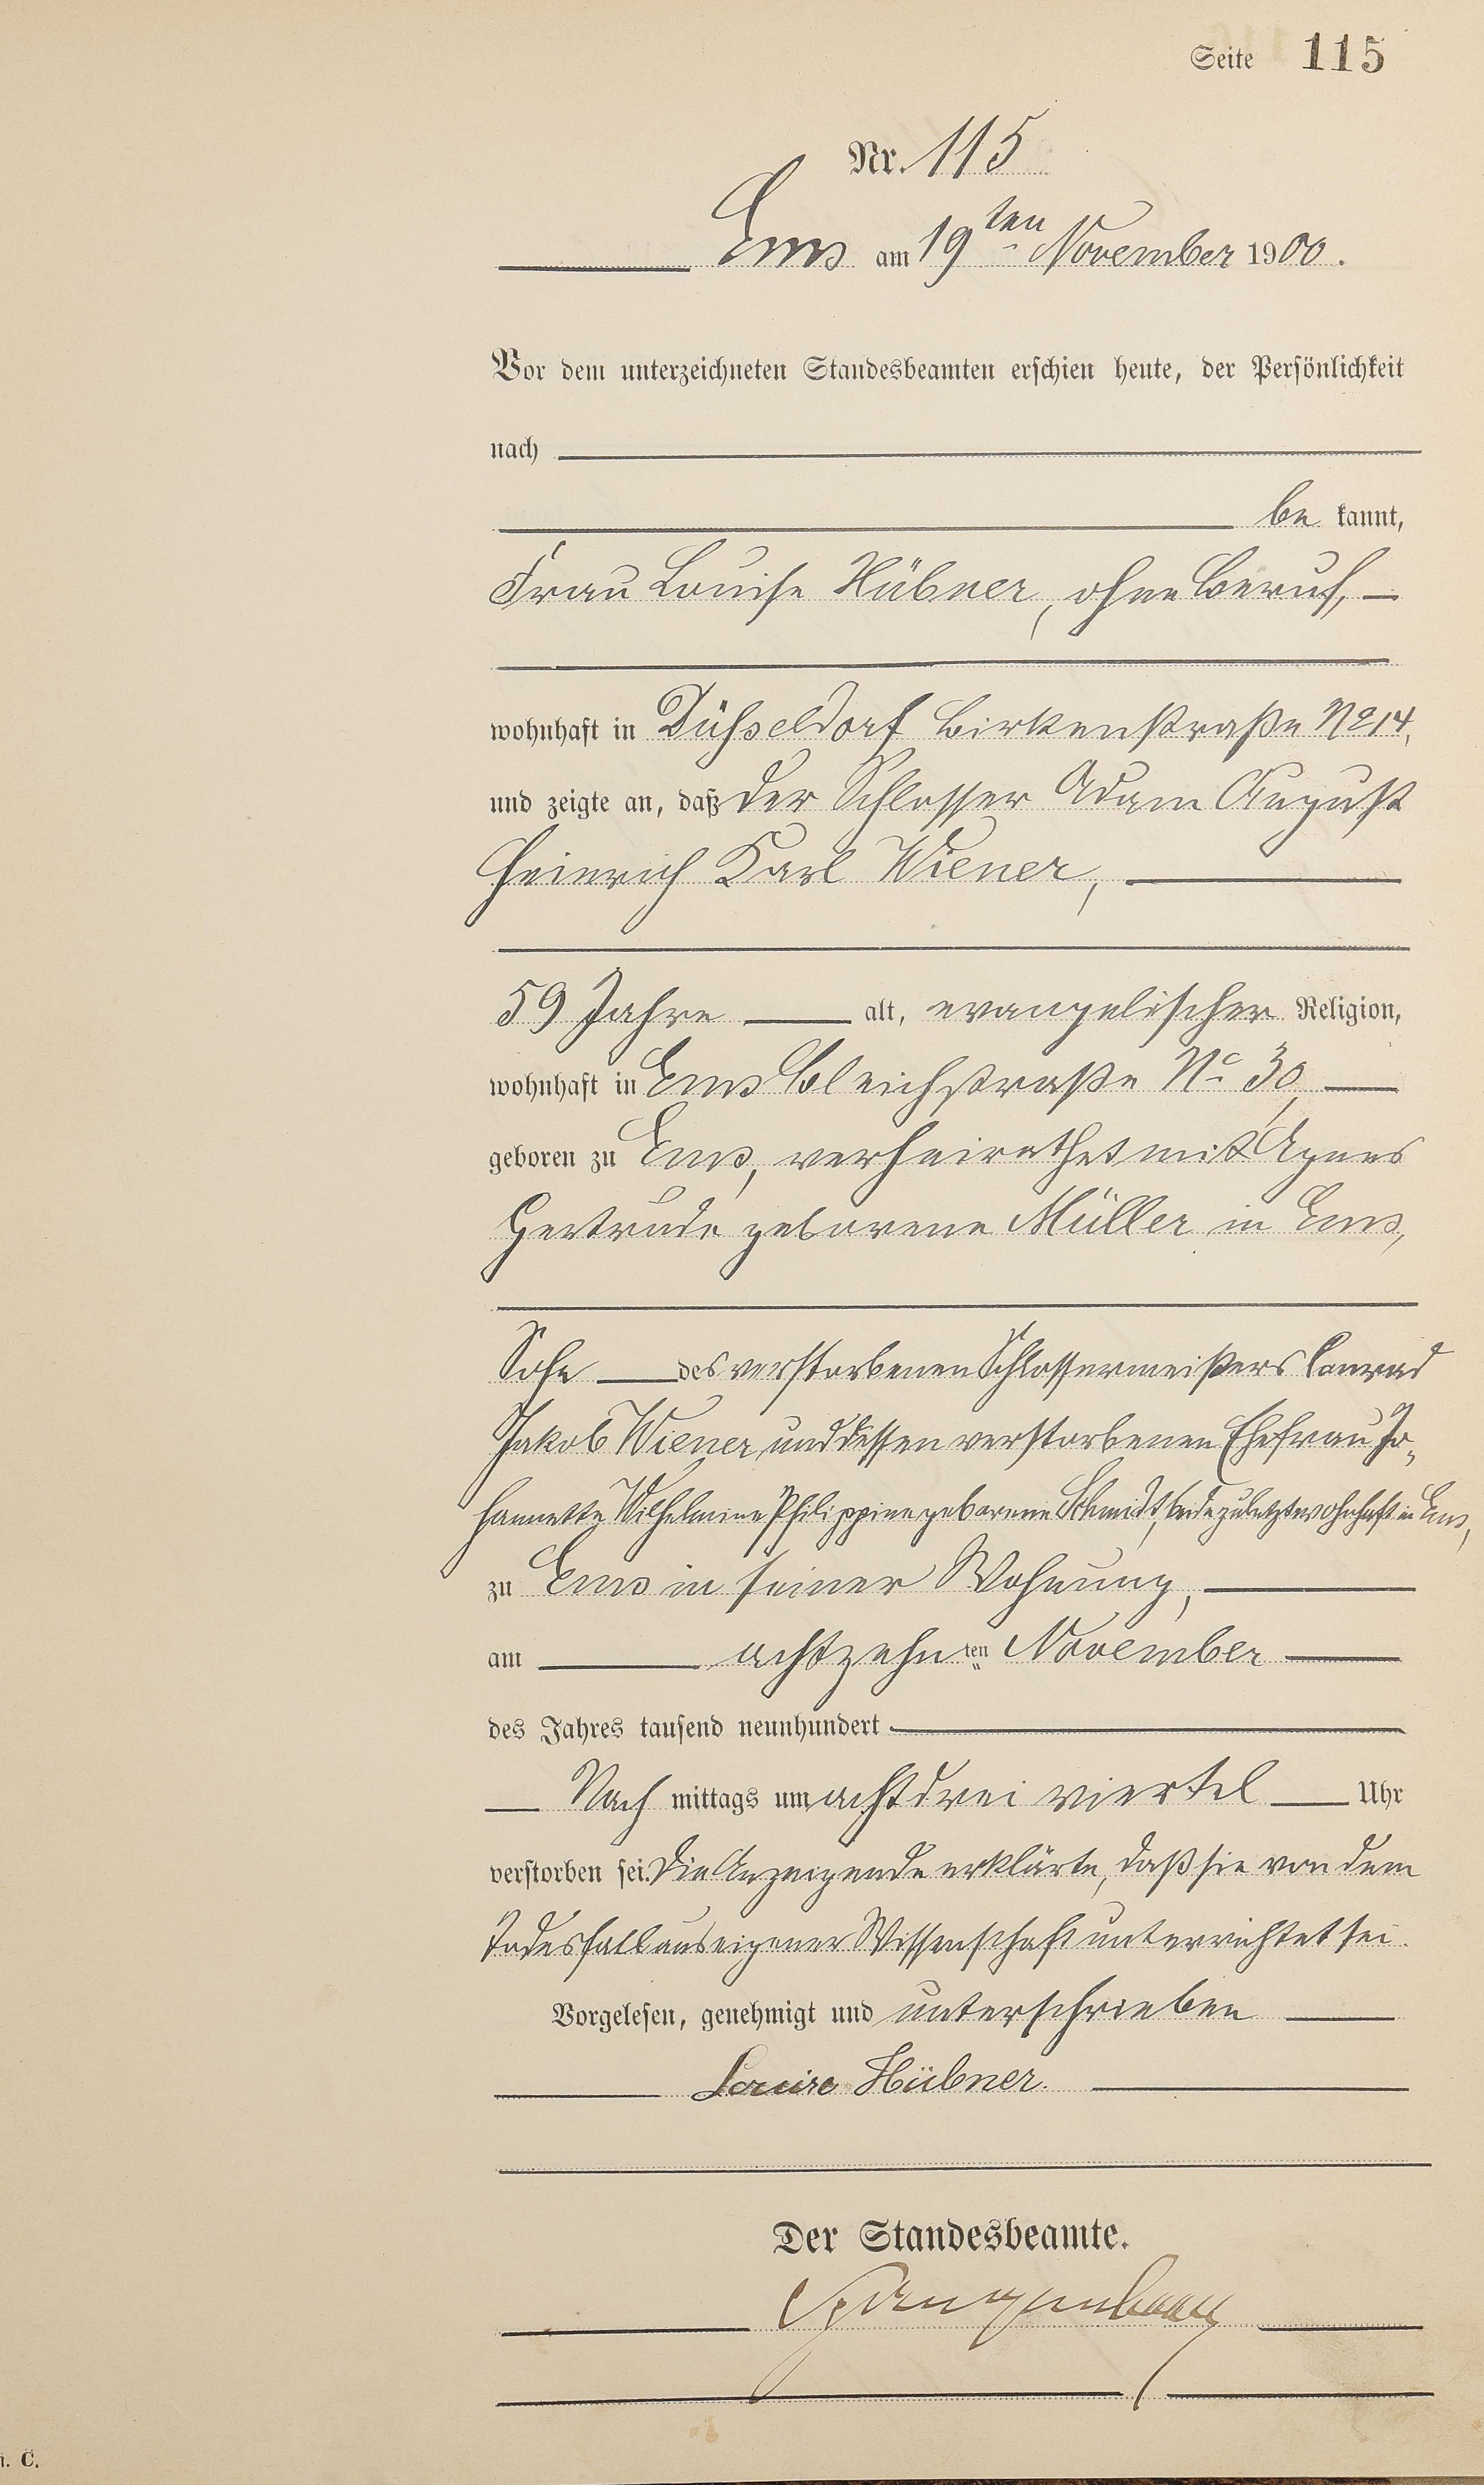 Seite 115
Nr. 115
Ems am 19ten November 1900.
Vor dem unterzeichneten Standesbeamten erschien heute, der Persönlichkeit
nach
be kannt,
Frau Louise Hübner, ohne Beruf,
wohnhaft in Düsseldorf Birkenstraße No 14,
und zeigte an, daß der Schlosser Adam August
Heinrich Karl Wiener,
59 Jahre alt, evangelischer Religion,
wohnhaft in Ems Bleichstraße No 30,
geboren zu Ems, verheirathet mit Agnes
Gertrude geborene Müller in Ems,
Sohn des verstorbenen Schlossermeisters Conrad
Jakob Wiener und dessen verstorbenen Ehefrau Jo-
hannette Wilhelmine Philippine geborene Schmidt, beide zuletzt wohnhaft in Ems,
zu Ems in seiner Wohnung,
am achtzehnten November
des Jahres tausend neunhundert
Nach mittags um acht drei viertel Uhr
verstorben sei. Die Anzeigende erklärte, daß sie von dem
Todesfall aus eigener Wissenschaft unterrichtet sei.
Vorgelesen, genehmigt und unterschrieben
Louise Hübner.
Der Standesbeamte.
C.